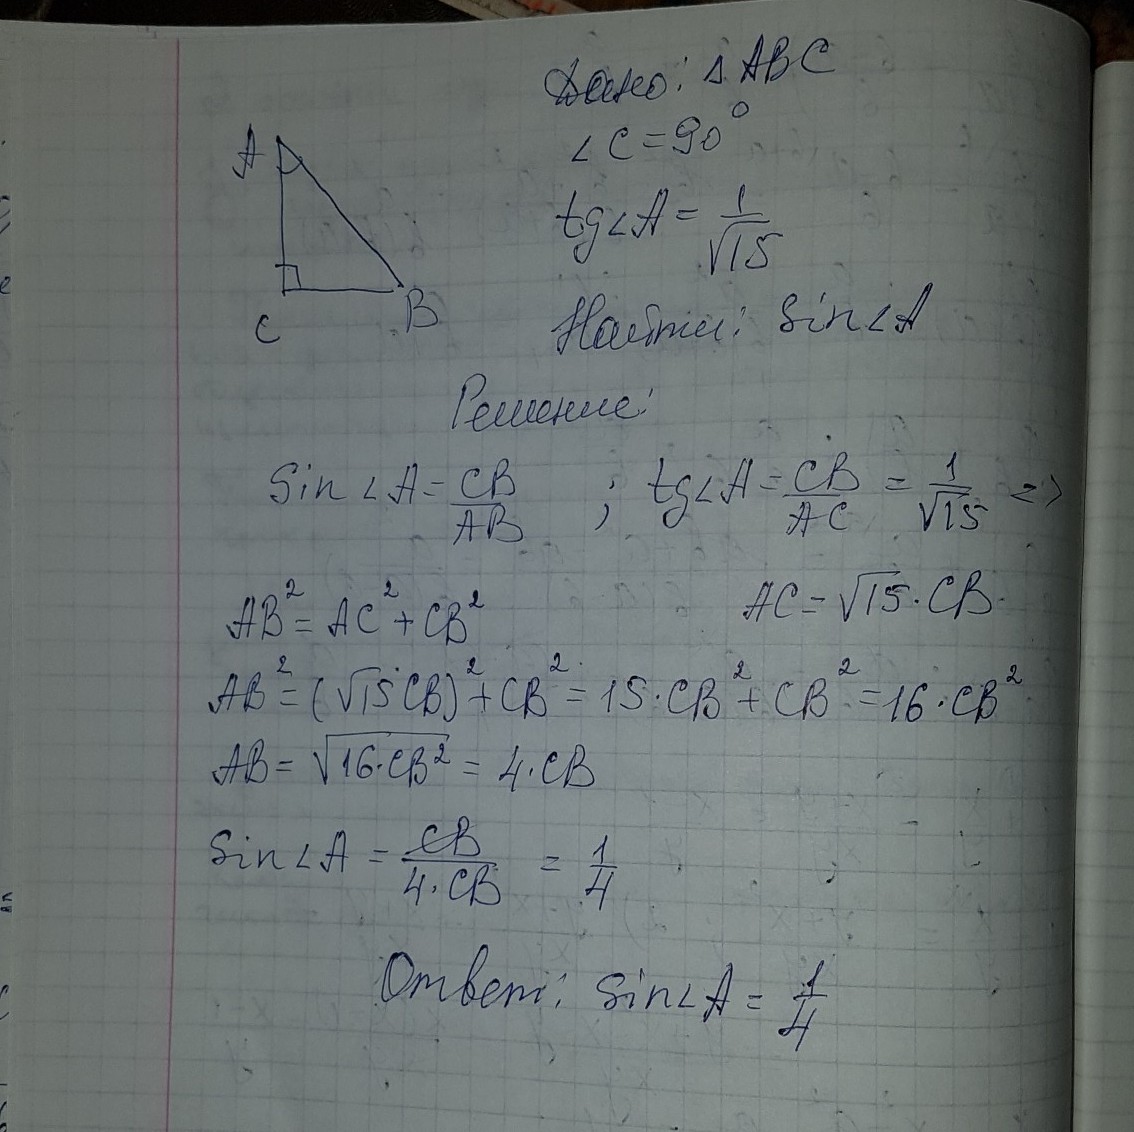 Дано: △ABC
∠C=90°
tg∠A = 1/√15
A
C
B
Найти: Sin∠A
Решение:
Sin∠A = CB/AB ; tg∠A = CB/AC = 1/√15 =>
AC = √15·CB
AB² = AC² + CB²
AB² = (√15CB)² + CB² = 15·CB² + CB² = 16·CB²
AB = √16·CB² = 4·CB
Sin∠A = CB/4·CB = 1/4
Ответ: Sin∠A = 1/4